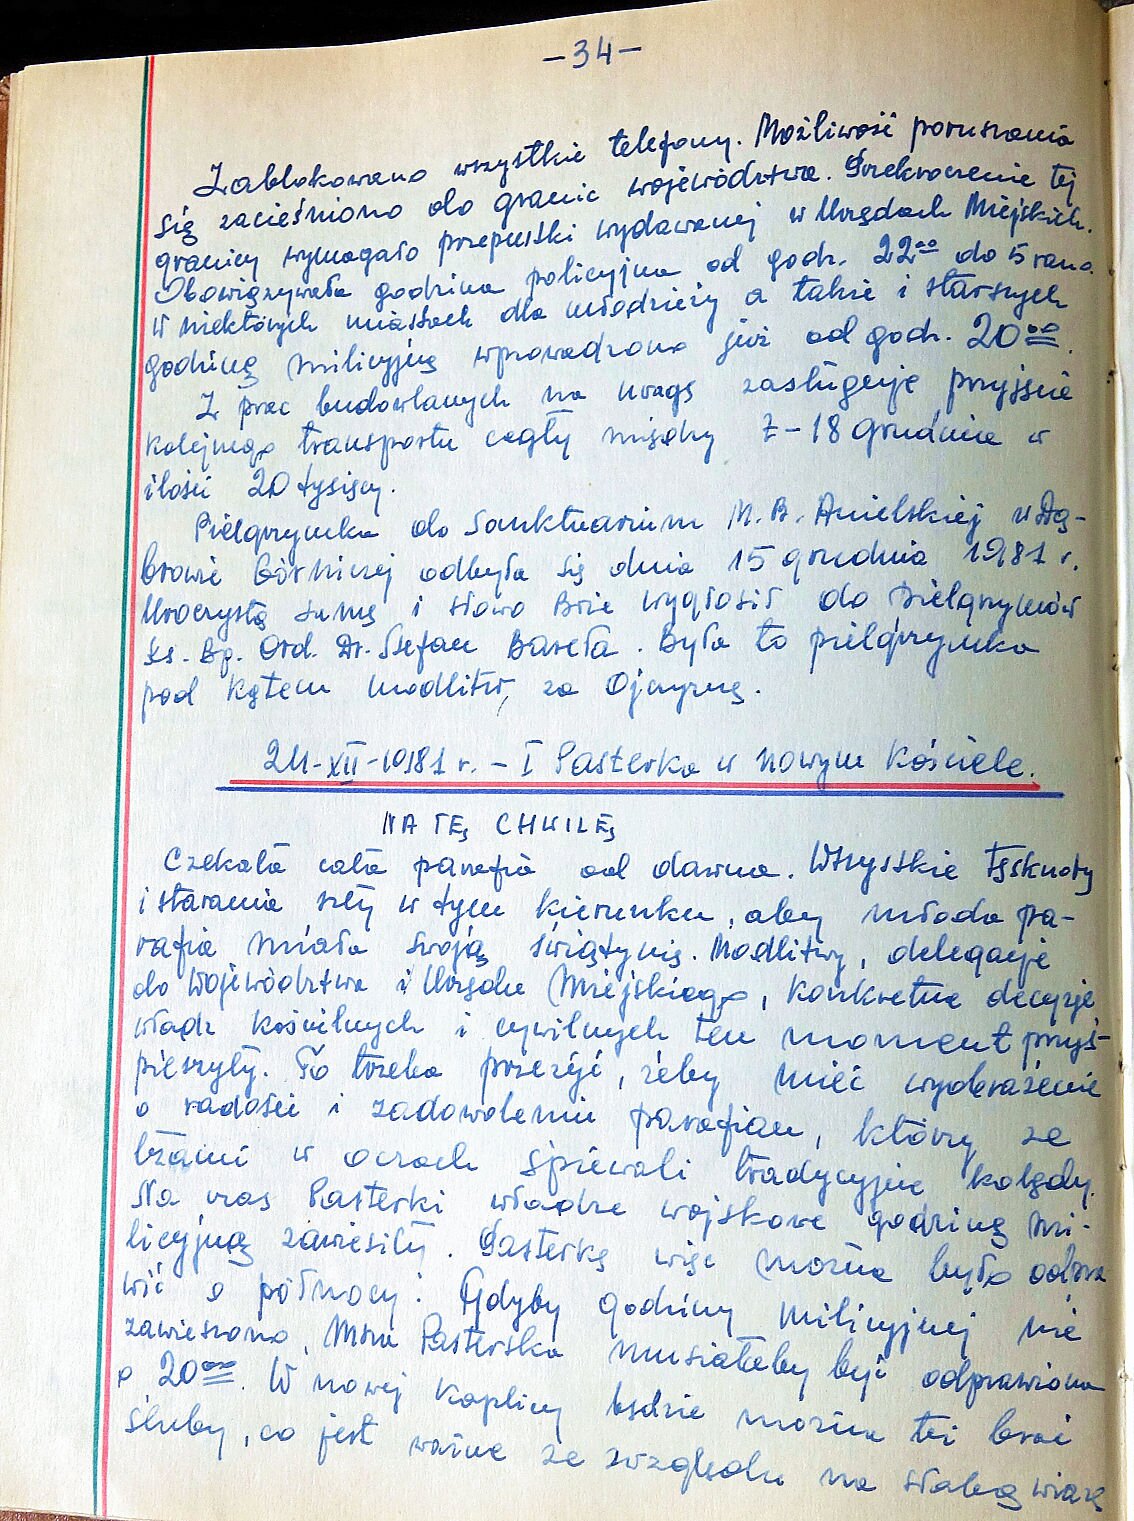 -34-
Zablokowano wszystkie telefony. Możliwość poruszania
się zacieśniono do granic województwa. Przekroczenie tej
granicy wymagało przepustki wydawanej w Urzędach Miejskich.
Obowiązywała godzina policyjna od godz. 22⁰⁰ do 5 rano.
W niektórych miastach dla młodzieży a także i starszych
godzinę milicyjną wprowadzono już od godz. 20⁰⁰.
Z prac budowlanych na uwagę zasługuje przyjście
kolejnego transportu cegły między 7-18 grudnia w
ilości 20 tysięcy.
Pielgrzymka do Sanktuarium M.B. Anielskiej w Dą-
browie Górniczej odbyła się dnia 15 grudnia 1981 r.
Uroczystą sumę i słowo Boże wygłosił do pielgrzymów
ks. Bp. Ord. Dr. Stefan Bareła. Była to pielgrzymka
pod kątem modlitw, za Ojczyznę.
24-XII-1981 r. - I Pasterka w nowym kościele.
NA TĘ CHWILĘ
Czekała cała parafia od dawna. Wszystkie tęsknoty
i starania szły w tym kierunku, aby młoda pa-
rafia miała swoją świątynię. Modlitwy, delegacje
do Województwa i Urzędu Miejskiego, konkretne decyzje
władz kościelnych i cywilnych ten moment przyś-
pieszyły. To trzeba przeżyć, żeby mieć wyobrażenie
o radości i zadowoleniu parafian, którzy ze
łzami w oczach śpiewali tradycyjne kolędy.
Na czas Pasterki władze wojskowe godzinę mi-
licyjną zawiesiły. Pasterkę więc można było odpra-
wić o północy. Gdyby godziny milicyjnej nie
zawieszono, Msza Pasterska musiałaby być odprawiona
o 20⁰⁰. W nowej kaplicy będzie można też brać
śluby, co jest ważne ze względu na słabą wiarę